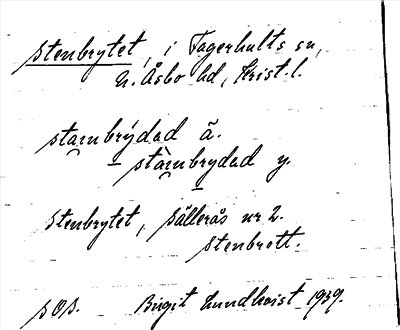 Stenbrytet, i Fagerhults sn,
N. Åsbo hd, Krist. l.
stambrýdad ä.
stàmbrydad y.
Stenbrytet, Sällerås nr 2.
stenbrott.
SOS. Birgit Lundkvist 1939.